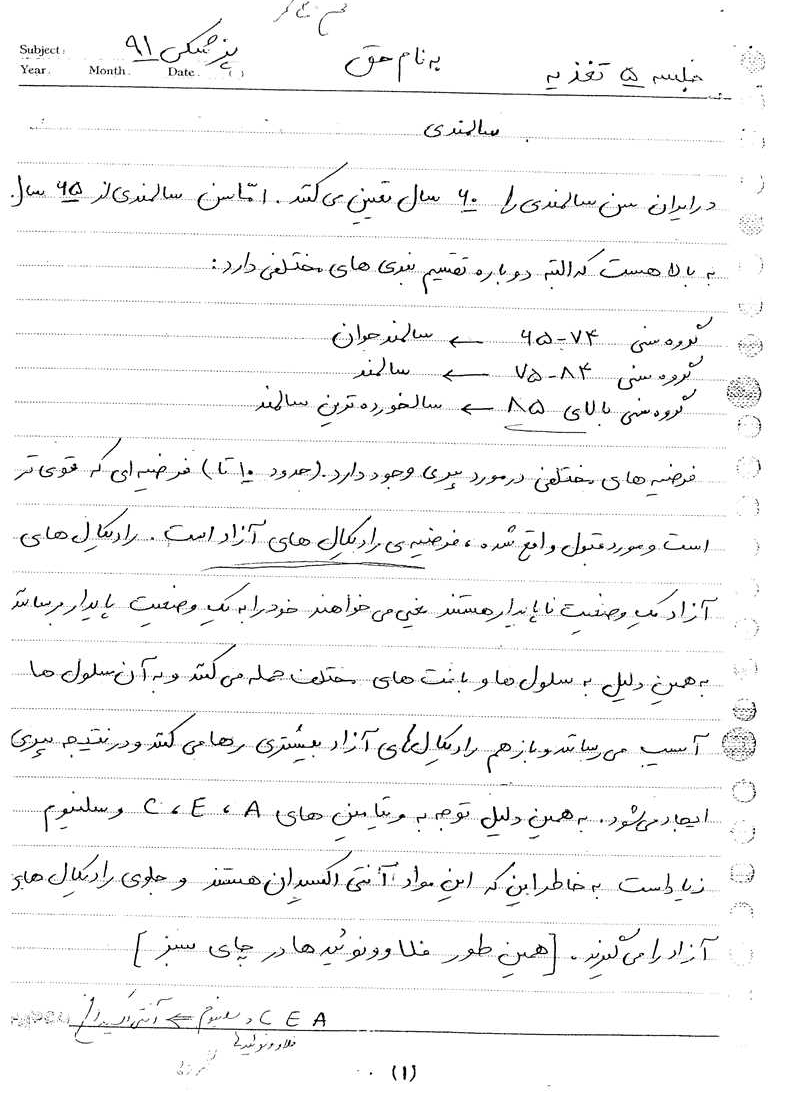 Subject:
Year. Month. Date. ( )
پزشکی ۹۱
به نام حق
جلسه ۵ تغذیه
سالمندی
در ایران سن سالمندی را ۶۰ سال تعیین می کنند. امّا سن سالمندی از ۶۵ سال
به بالا هست که البته دوباره تقسیم بندی های مختلفی دارد:
گروه سنی ۷۴-۶۵ ← سالمند جوان
گروه سنی ۸۴-۷۵ ← سالمند
گروه سنی بالای ۸۵ ← سالخورده ترین سالمند
فرضیه های مختلفی در مورد پیری وجود دارد. (حدود ۱۰ تا) فرضیه ای که قوی تر
است و مورد قبول واقع شده، فرضیه ی رادیکال های آزاد است. رادیکال های
آزاد یک وضعیت ناپایدار هستند یعنی می خواهند خود را به یک وضعیت پایدار برسانند
به همین دلیل به سلول ها و بافت های مختلف حمله می کنند و به آن سلول ها
آسیب می رسانند و باز هم رادیکال های آزاد بیشتری رها می کنند و در نتیجه پیری
ایجاد می شود. به همین دلیل توجه به ویتامین های C ، E ، A و سلنیوم
زیاد است به خاطر این که این مواد آنتی اکسیدان هستند و جلوی رادیکال های
آزاد را می گیرند. [همین طور فلاوونوئیدها در چای سبز]
C E A و سلنیوم ← آنتی اکسیدان
فلاوونوئیدها
(۱)